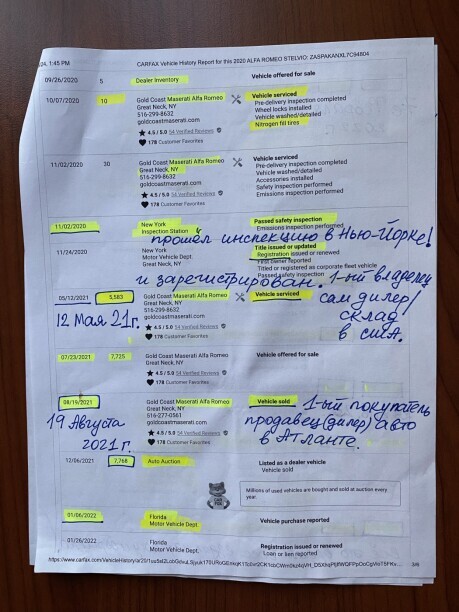 24, 1:45 PM CARFAX Vehicle History Report for this 2020 ALFA ROMEO STELVIO: ZASPAKANXL7C94804
09/26/2020 5 Dealer Inventory Vehicle offered for sale
10/07/2020 10 Gold Coast Maserati Alfa Romeo Vehicle serviced
Great Neck, NY Pre-delivery inspection completed
516-299-8632 Wheel locks installed
goldcoastmaserati.com Vehicle washed/detailed
Nitrogen fill tires
4.5 / 5.0 54 Verified Reviews
178 Customer Favorites
11/02/2020 30 Gold Coast Maserati Alfa Romeo Vehicle serviced
Great Neck, NY Pre-delivery inspection completed
516-299-8632 Vehicle washed/detailed
goldcoastmaserati.com Accessories installed
Safety inspection performed
4.5 / 5.0 54 Verified Reviews Emissions inspection performed
178 Customer Favorites
11/02/2020 New York Passed safety inspection
Inspection Station Emissions inspection performed
прошёл инспекцию в Нью-Йорке!
11/24/2020 New York Title issued or updated
Motor Vehicle Dept. Registration issued or renewed
Great Neck, NY First owner reported
Titled or registered as corporate fleet vehicle
Passed safety inspection
и зарегистрирован. 1-ый владелец
05/12/2021 5,583 Gold Coast Maserati Alfa Romeo Vehicle serviced
Great Neck, NY
516-299-8632
goldcoastmaserati.com
сам дилер/
склад
в США.
12 Мая 21г.
4.5 / 5.0 54 Verified Reviews
178 Customer Favorites
07/23/2021 7,725 Gold Coast Maserati Alfa Romeo Vehicle offered for sale
4.5 / 5.0 54 Verified Reviews
178 Customer Favorites
08/19/2021 Gold Coast Maserati Alfa Romeo Vehicle sold
Great Neck, NY
516-277-0561
goldcoastmaserati.com
1-ый покупатель
продавец(дилер) авто
в Атланте.
19 Августа
2021 г.
4.5 / 5.0 54 Verified Reviews
178 Customer Favorites
12/06/2021 7,768 Auto Auction Listed as a dealer vehicle
Vehicle sold
CAR FOX
Millions of used vehicles are bought and sold at auction every
year.
01/06/2022 Florida Vehicle purchase reported
Motor Vehicle Dept.
01/26/2022 Florida Registration issued or renewed
Motor Vehicle Dept. Loan or lien reported